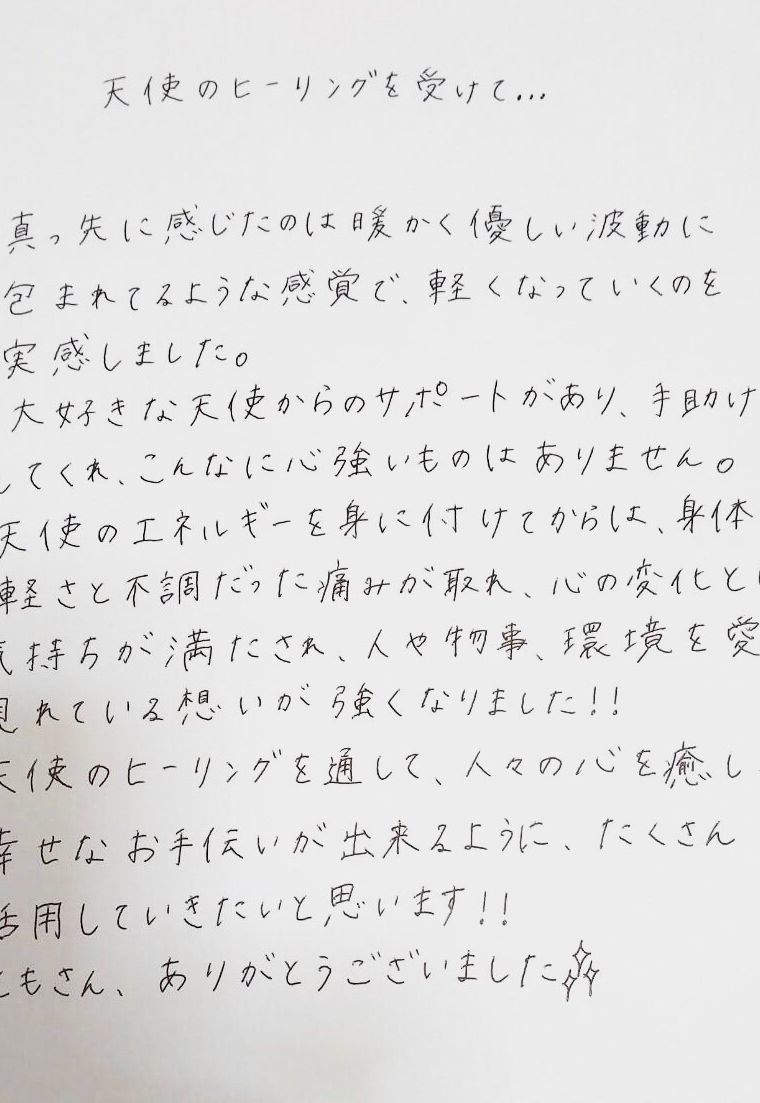 天使のヒーリングを受けて...
真っ先に感じたのは暖かく優しい波動に
包まれてるような感覚で、軽くなっていくのを
実感しました。
大好きな天使からのサポートがあり、手助け
してくれ、こんなに心強いものはありません。
天使のエネルギーを身に付けてからは、身体
軽さと不調だった痛みが取れ、心の変化と
気持ちが満たされ、人や物事、環境を愛
見れている想いが強くなりました!!
天使のヒーリングを通して、人々の心を癒し、
幸せなお手伝いが出来るように、たくさん
活用していきたいと思います!!
ともさん、ありがとうございました